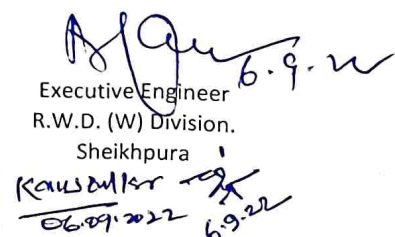 6.9.22
Executive Engineer
R.W.D. (W) Division.
Sheikhpura
06.09.2022
6.9.22